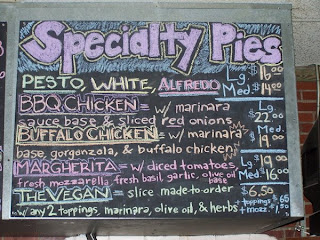 Specialty Pies
PESTO, WHITE, ALFREDO Lg. $16.00
Med. $14.00
BBQ CHICKEN = w/ marinara Lg. $22.00
sauce base & sliced red onions
BUFFALO CHICKEN = w/ marinara Med. $19.00
base, gorgonzola, & buffalo chicken
MARGHERITA = w/ diced tomatoes Lg $19.00
fresh mozzarella, fresh basil, garlic, olive oil base Med $16.00
THE VEGAN = slice made-to-order $6.50
w/ any 2 toppings, marinara, olive oil, & herbs + toppings $.65
+ mozz